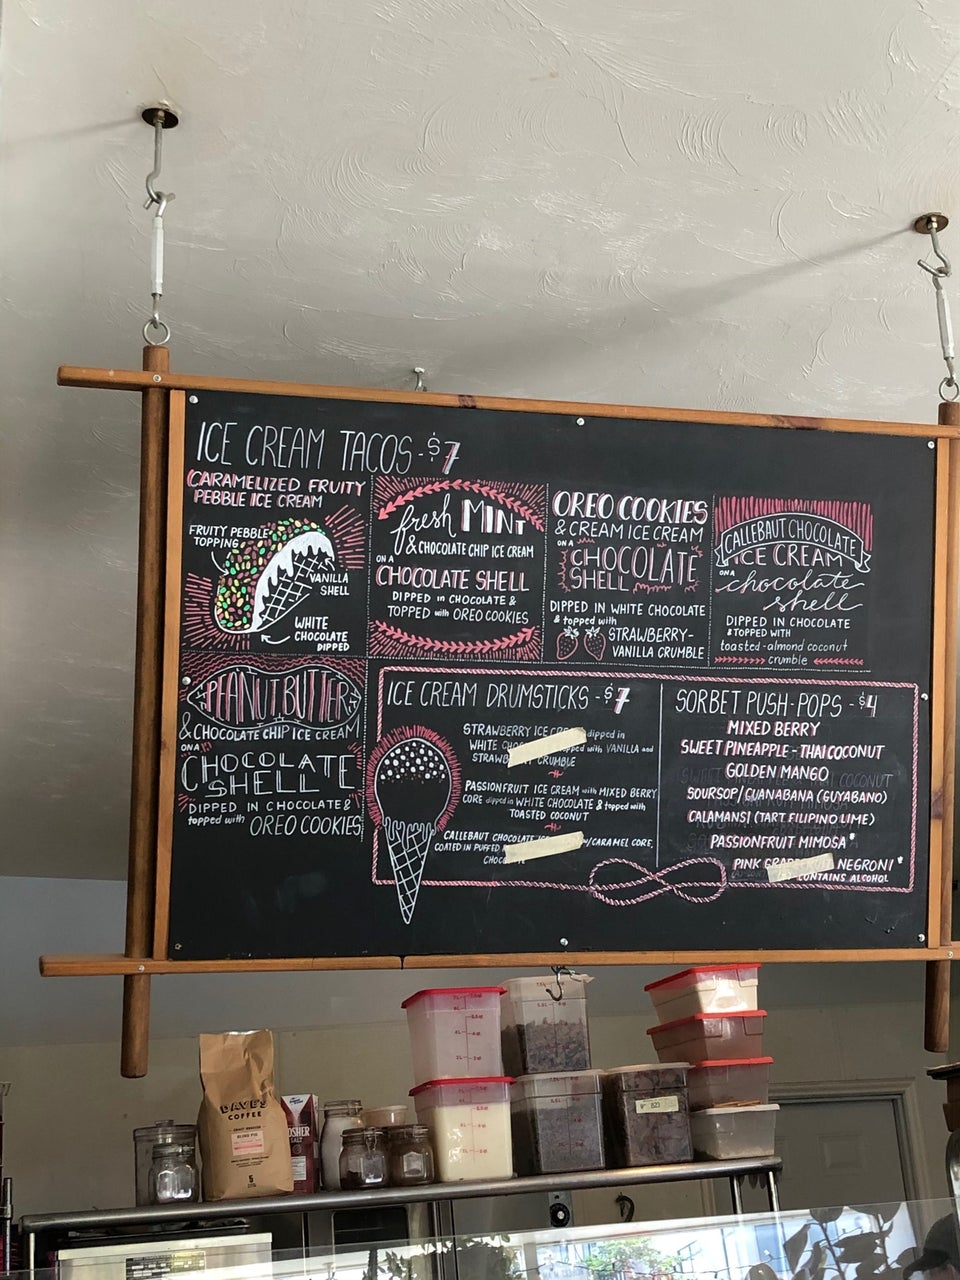 ICE CREAM TACOS - $7
CARAMELIZED FRUITY
PEBBLE ICE CREAM
FRUITY PEBBLE
TOPPING
VANILLA
SHELL
WHITE
CHOCOLATE
DIPPED
fresh MINT
& CHOCOLATE CHIP ICE CREAM
ON A
CHOCOLATE SHELL
DIPPED IN CHOCOLATE &
TOPPED with OREO COOKIES
OREO COOKIES
& CREAM ICE CREAM
ON A
CHOCOLATE
SHELL
DIPPED IN WHITE CHOCOLATE
& topped with
STRAWBERRY-
VANILLA CRUMBLE
CALLEBAUT CHOCOLATE
ICE CREAM
ON A
chocolate
shell
DIPPED IN CHOCOLATE
& TOPPED WITH
toasted-almond coconut
crumble
PEANUT BUTTER
& CHOCOLATE CHIP ICE CREAM
ON A
CHOCOLATE
SHELL
DIPPED IN CHOCOLATE &
topped with OREO COOKIES
ICE CREAM DRUMSTICKS - $7
STRAWBERRY ICE dipped in
WHITE with VANILLA and
CRUMBLE
PASSIONFRUIT ICE CREAM with MIXED BERRY
CORE dipped in WHITE CHOCOLATE & topped with
TOASTED COCONUT
CALLEBAUT CHOCOLATE w/CARAMEL CORE,
COATED IN PUFFED
SORBET PUSH-POPS - $4
MIXED BERRY
SWEET PINEAPPLE - THAI COCONUT
GOLDEN MANGO
SOURSOP/GUANABANA (GUYABANO)
CALAMANSI (TART FILIPINO LIME)
PASSIONFRUIT MIMOSA*
PINK NEGRONI*
CONTAINS ALCOHOL
DAVE'S
COFFEE
5
KOSHER
SALT